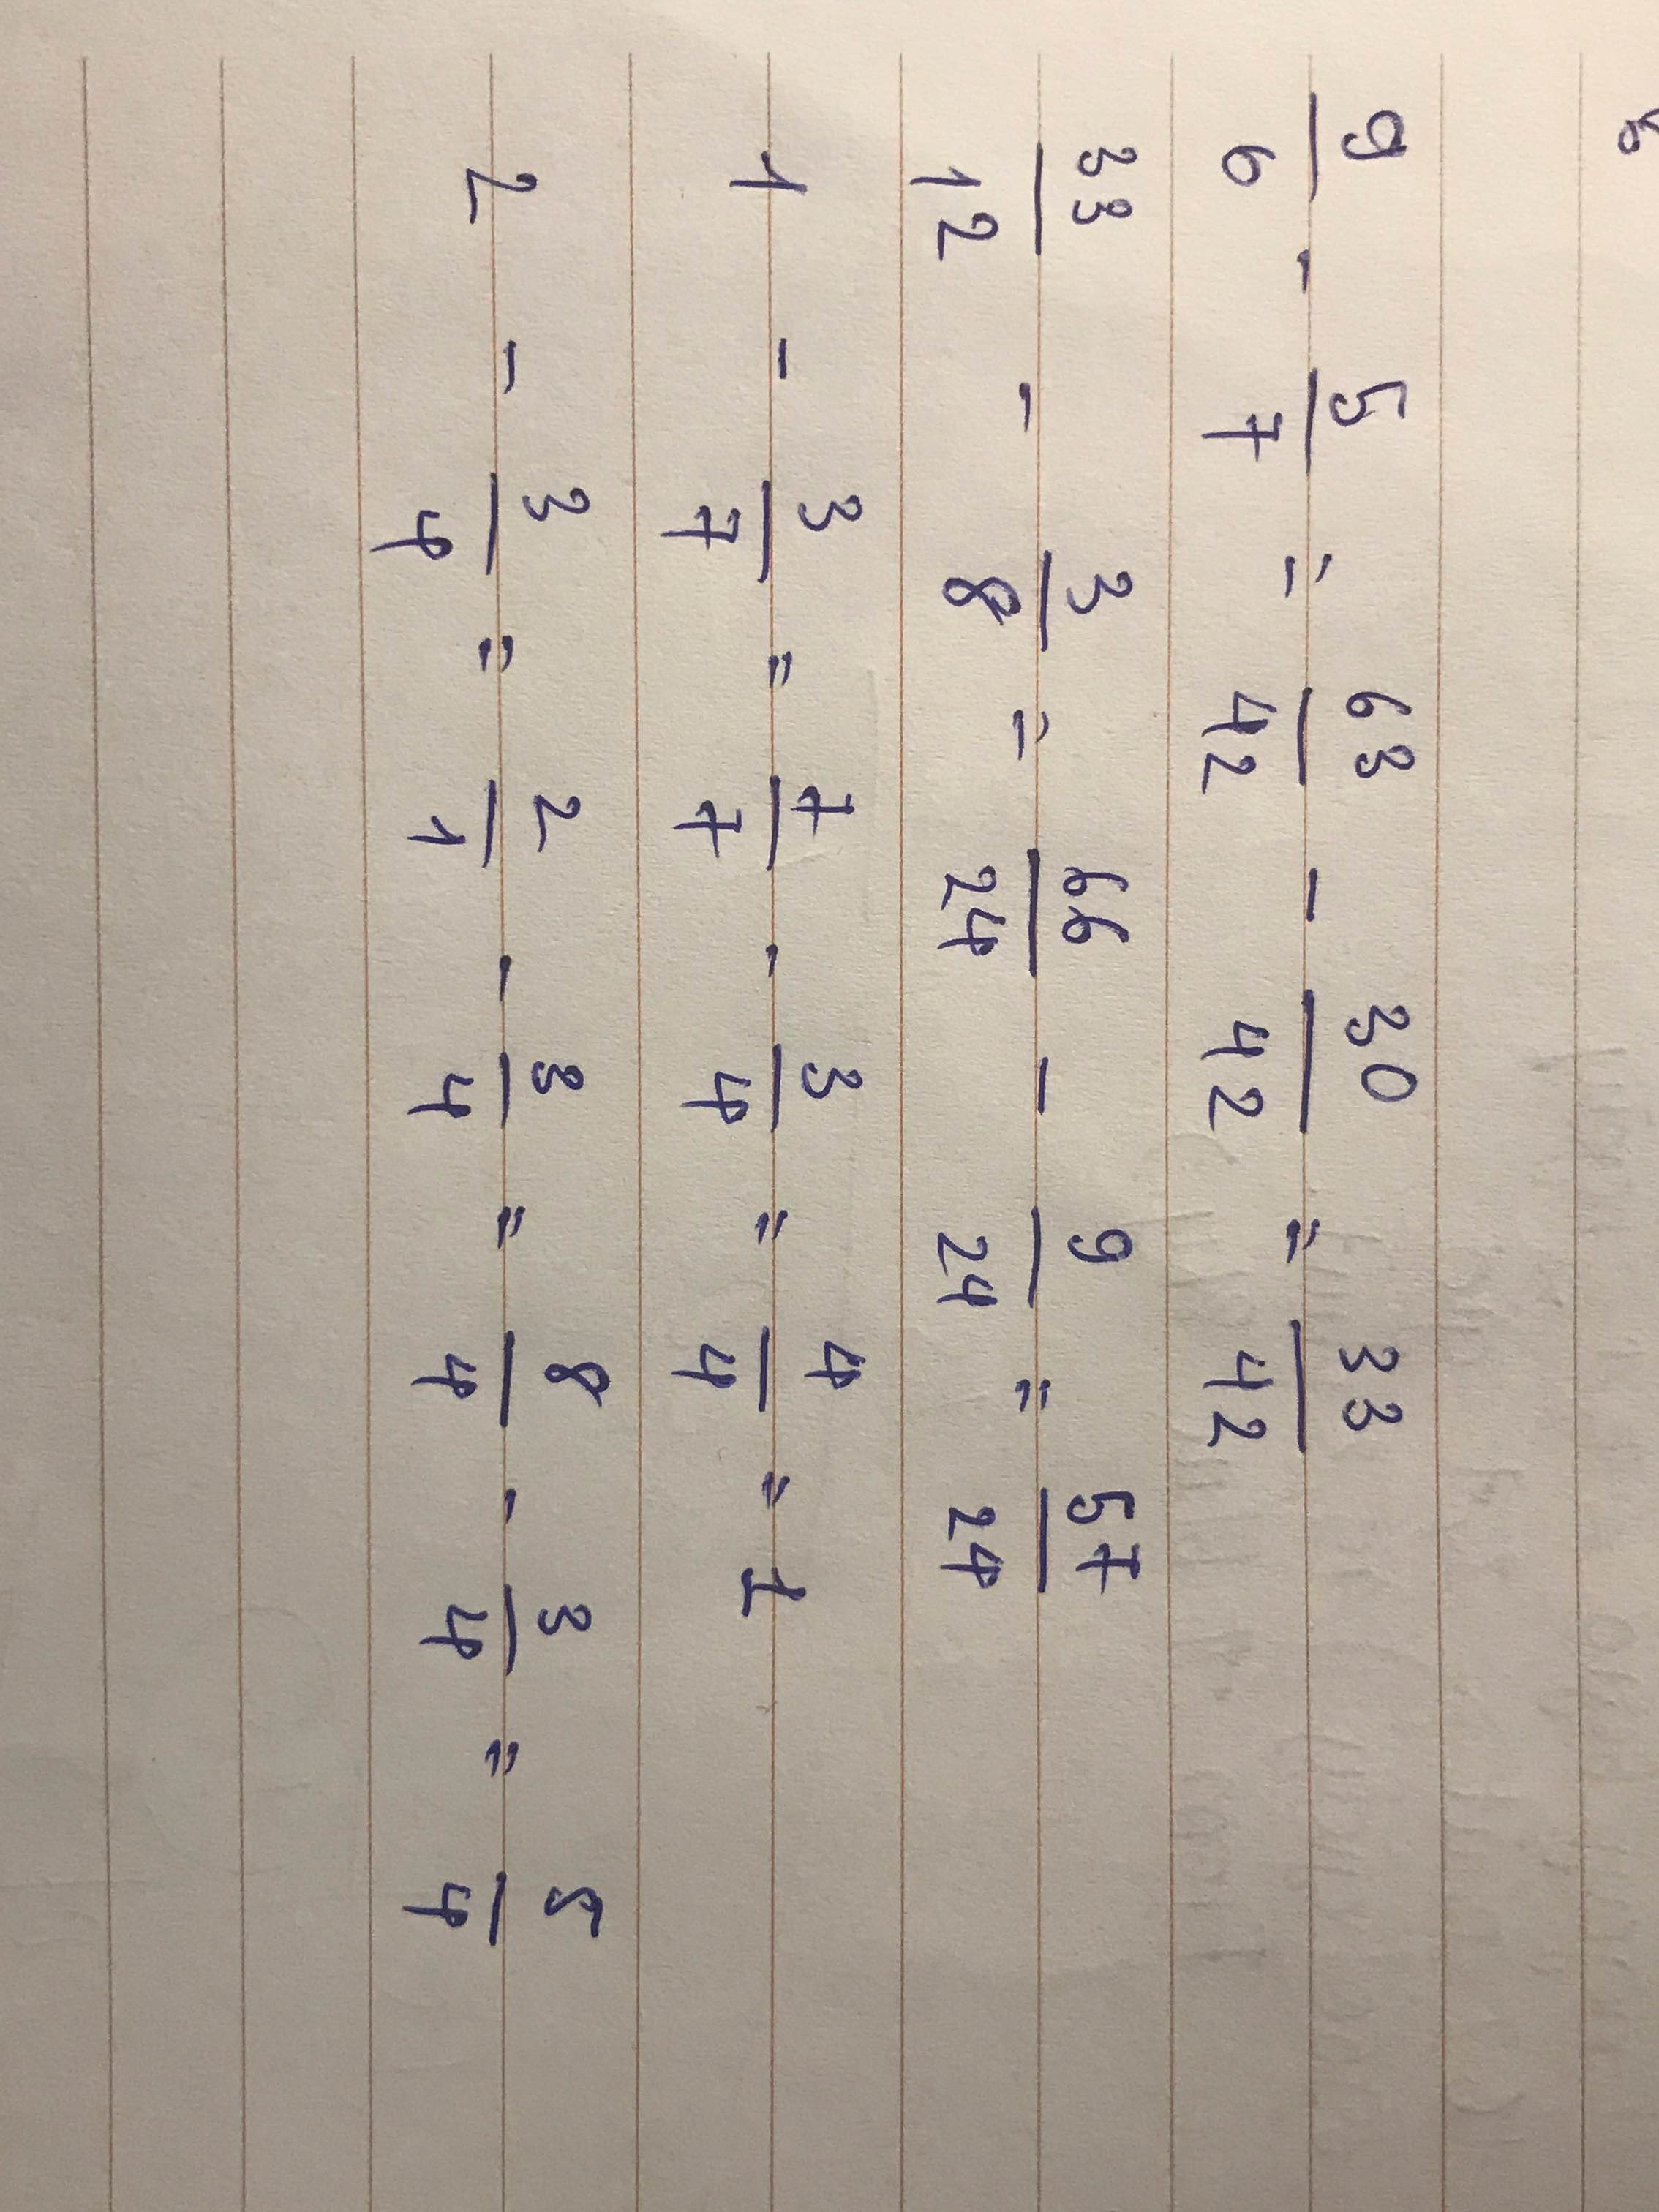 9/6 - 5/7 = 63/42 - 30/42 = 33/42
33/12 - 3/8 = 66/24 - 9/24 = 57/24
1 - 3/7 = 7/7 - 3/4 = 4/4 = 1
2 - 3/4 = 2/1 - 3/4 = 8/4 - 3/4 = 5/4